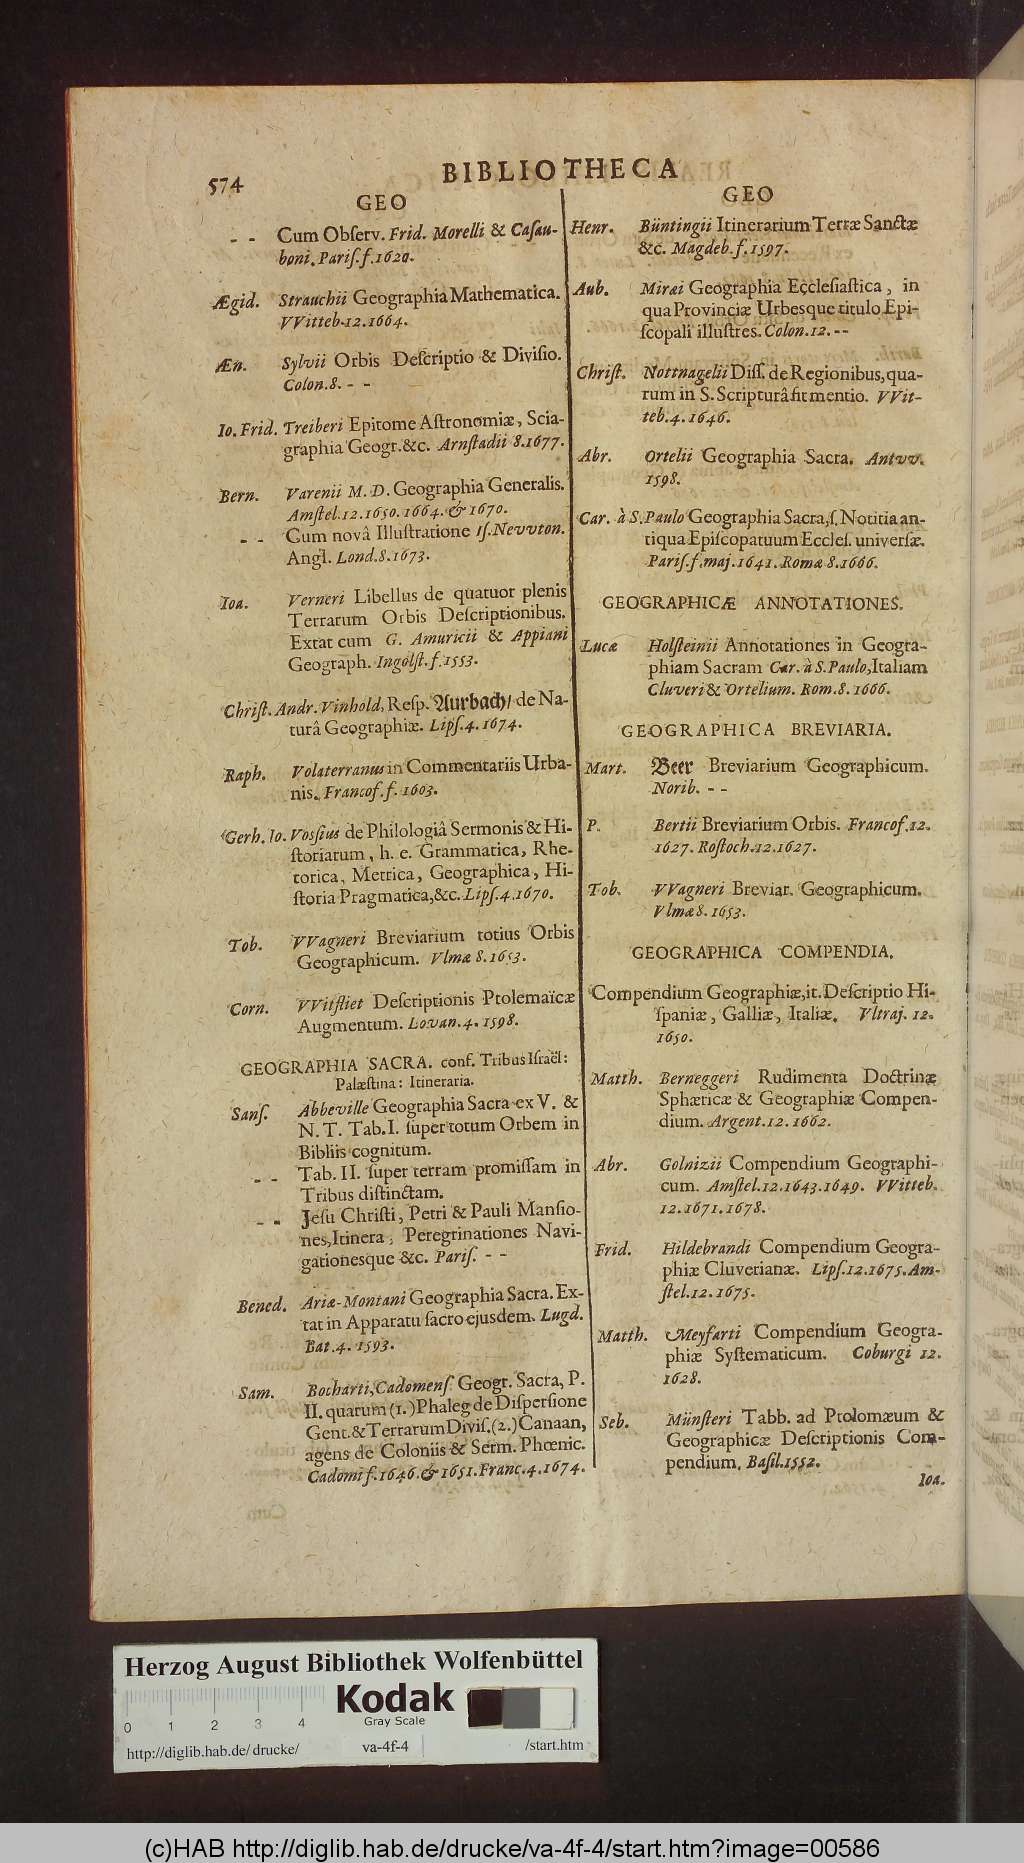 574
BIBLIOTHECA
GEO
- - Cum Obſerv. Frid. Morelli & Caſau-
boni. Pariſ. f. 1620.
Ægid. Strauchii Geographia Mathematica.
VVitteb. 12. 1664.
Æn. Sylvii Orbis Deſcriptio & Diviſio.
Colon. 8. - -
Io. Frid. Treiberi Epitome Aſtronomiæ, Scia-
graphia Geogr. &c. Arnſtadii 8. 1677.
Bern. Varenii M. D. Geographia Generalis.
Amſtel. 12. 1650. 1664. & 1670.
- - Cum novâ Illuſtratione Iſ. Nevvton.
Angl. Lond. 8. 1673.
Ioa. Verneri Libellus de quatuor plenis
Terrarum Orbis Deſcriptionibus.
Extat cum G. Amuricii & Appiani
Geograph. Ingolſt. f. 1553.
Chriſt. Andr. Vinhold, Reſp. Aurbach/ de Na-
turâ Geographiæ. Lipſ. 4. 1674.
Raph. Volaterranus in Commentariis Urba-
nis. Francof. f. 1603.
Gerh. Io. Voſſius de Philologiâ Sermonis & Hi-
ſtoriarum, h. e. Grammatica, Rhe-
torica, Metrica, Geographica, Hi-
ſtoria Pragmatica, &c. Lipſ. 4. 1670.
Tob. VVagneri Breviarium totius Orbis
Geographicum. Vlmæ 8. 1653.
Corn. VVitfliet Deſcriptionis Ptolemaïcæ
Augmentum. Lovan. 4. 1598.
GEOGRAPHIA SACRA. conf. Tribus Iſraël:
Palæſtina: Itineraria.
Sanſ. Abbeville Geographia Sacra ex V. &
N. T. Tab. I. ſuper totum Orbem in
Bibliis cognitum.
- - Tab. II. ſuper terram promiſſam in
Tribus diſtinctam.
- - Jeſu Chriſti, Petri & Pauli Manſio-
nes, Itinera, Peregrinationes Navi-
gationesque &c. Pariſ. - -
Bened. Ariæ-Montani Geographia Sacra. Ex-
tat in Apparatu ſacro ejusdem. Lugd.
Bat. 4. 1593.
Sam. Bocharti, Cadomenſ. Geogr. Sacra, P.
II. quarum (1.) Phaleg de Diſperſione
Gent. & Terrarum Diviſ. (2.) Canaan,
agens de Coloniis & Serm. Phœnic.
Cadomi f. 1646. & 1651. Franc. 4. 1674.
GEO
Henr. Büntingii Itinerarium Terræ Sanctæ
&c. Magdeb. f. 1597.
Aub. Miræi Geographia Eccleſiaſtica, in
qua Provinciæ Urbesque titulo Epi-
ſcopali illuſtres. Colon. 12. - -
Chriſt. Nottnagelii Diſſ. de Regionibus, qua-
rum in S. Scripturâ fit mentio. VVit-
teb. 4. 1646.
Abr. Ortelii Geographia Sacra. Antvv.
1598.
Car. à S. Paulo Geographia Sacra, ſ. Notitia an-
tiqua Epiſcopatuum Eccleſ. univerſæ.
Pariſ. f. maj. 1641. Romæ 8. 1666.
GEOGRAPHICÆ ANNOTATIONES.
Lucæ Holſteinii Annotationes in Geogra-
phiam Sacram Car. à S. Paulo, Italiam
Cluveri & Ortelium. Rom. 8. 1666.
GEOGRAPHICA BREVIARIA.
Mart. Beer Breviarium Geographicum.
Norib. - -
P. Bertii Breviarium Orbis. Francof. 12.
1627. Roſtoch. 12. 1627.
Tob. VVagneri Breviar. Geographicum.
Vlmæ 8. 1653.
GEOGRAPHICA COMPENDIA.
Compendium Geographiæ, it. Deſcriptio Hi-
ſpaniæ, Galliæ, Italiæ. Vltraj. 12.
1650.
Matth. Berneggeri Rudimenta Doctrinæ
Sphæricæ & Geographiæ Compen-
dium. Argent. 12. 1662.
Abr. Golnizii Compendium Geographi-
cum. Amſtel. 12. 1643. 1649. VVitteb.
12. 1671. 1678.
Frid. Hildebrandi Compendium Geogra-
phiæ Cluverianæ. Lipſ. 12. 1675. Am-
ſtel. 12. 1675.
Matth. Meyfarti Compendium Geogra-
phiæ Syſtematicum. Coburgi 12.
1628.
Seb. Münſteri Tabb. ad Ptolomæum &
Geographicæ Deſcriptionis Com-
pendium. Baſil. 1552.
Ioa.
Herzog August Bibliothek Wolfenbüttel
Kodak
Gray Scale
0 1 2 3 4
http://diglib.hab.de/drucke/ va-4f-4 /start.htm
(c)HAB http://diglib.hab.de/drucke/va-4f-4/start.htm?image=00586